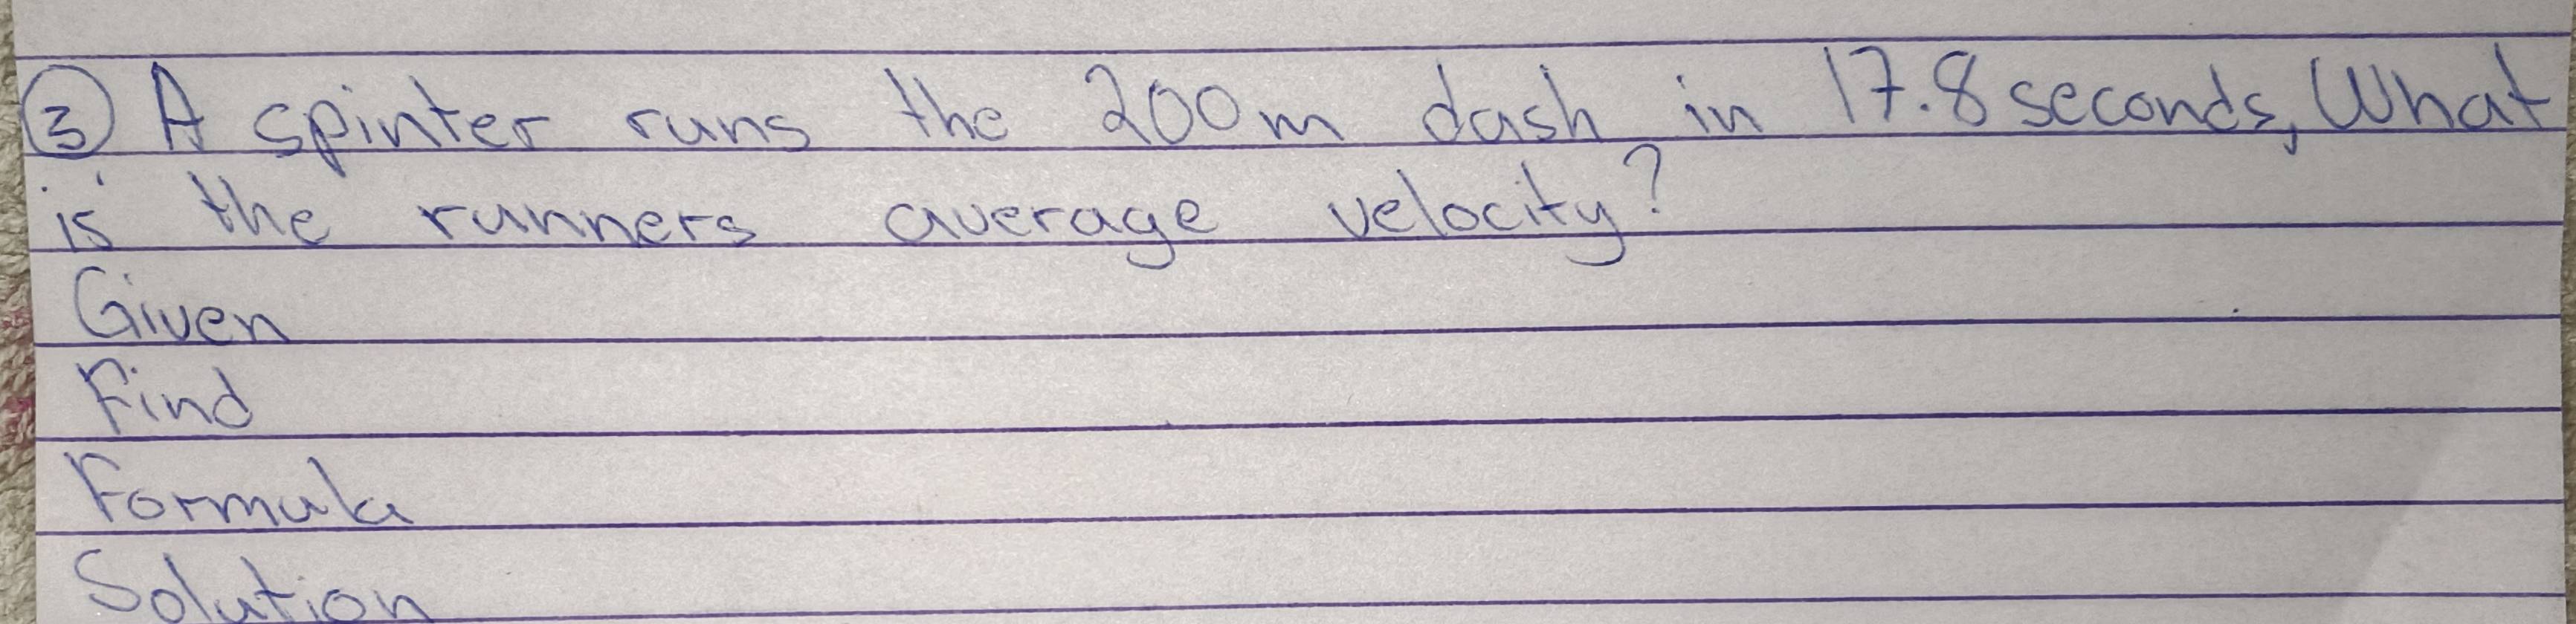 ③ A spinter runs the 200m dash in 17.8 seconds, What
is the runners average velocity?
Given
Find
Formula
Solution